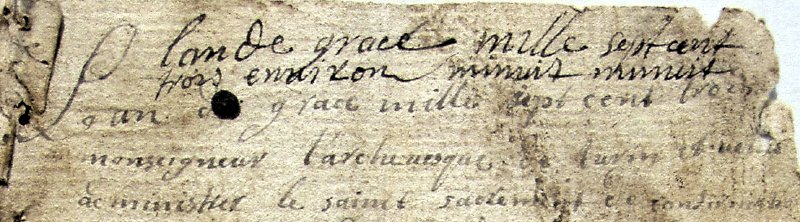 lan de grace mille sept cent
trois enuiron minuit minuit
Lan de grace mille sept cent trois
monseigneur l'archeuesque de turin est venu
administrer le sainct sacrement de confirmation